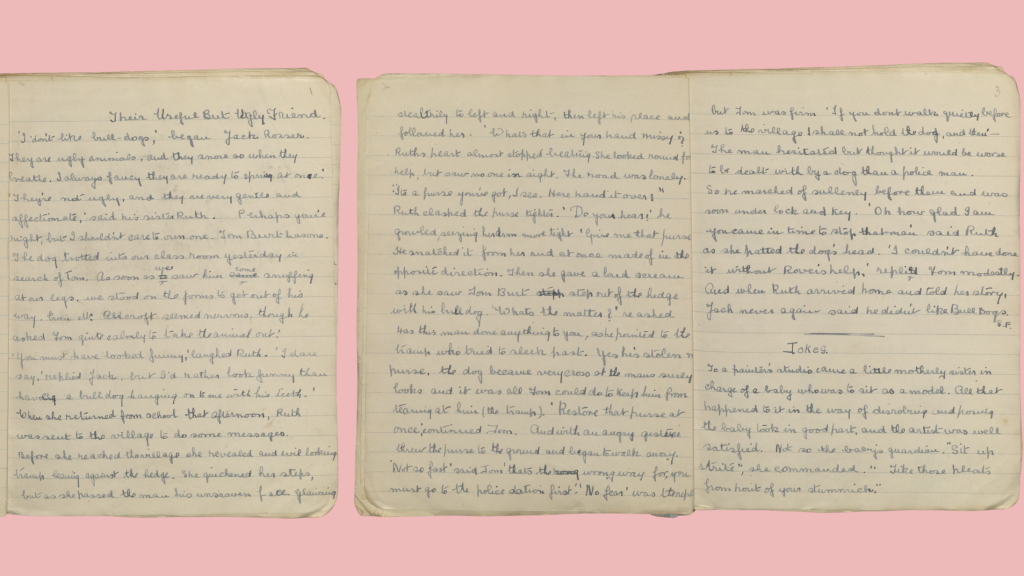 1
Their Useful But Ugly Friend.
'I don't like bull-dogs,' began Jack Rosser.
They are ugly animals, and they snore so when they
breathe. I always fancy they are ready to spring at once.'
'They're not ugly, and they are very gentle and
affectionate,' said his sister Ruth. Perhaps you're
right, but I shouldn't care to own one. Tom Burt has one.
The dog trotted into our class room yesterday in
search of Tom. As soon as we saw him come snuffing
at our legs, we stood on the forms to get out of his
way. Even Mr Ashcroft seemed nervous, though he
asked Tom quite calmly to take the animal out.'
'You must have looked funny,' laughed Ruth. 'I dare
say,' replied Jack, but I'd rather look funny than
having a bulldog hanging on to me with his teeth.'
When she returned from school that afternoon, Ruth
was sent to the village to do some messages.
Before she reached the village she revealed and evil looking
tramp leaning against the hedge. She quickened her steps,
but as she passed the man his unshaven face glancing
2
stealthily to left and right, then left his place and
followed her. 'Whats that in your hand missy'?
Ruths heart almost stopped beating. She looked round for
help, but saw no one in sight. The road was lonely.
'Its a purse you've got, I see. Here hand it over!'
Ruth clasped the purse tighter. 'Do you hear,' he
growled seizing her arm more tight 'Give me that purse
He snatched it from her and at once made of in the
opposite direction. Then she gave a loud scream
as she saw Tom Burt step out of the hedge
with his bulldog. 'Whats the matter?' he asked
Has this man done anything to you, as he pointed to the
tramp who tried to sleek past. Yes his stolen m
purse, the dog became very cross at the mans surly
looks and it was all Tom could do to keep him from
tearing at him (the tramp). 'Restore that purse at
once', continued Tom. And with an angry gesture
threw the purse to the ground and began to walk away.
'Not so fast' said Tom 'thats the wrong way for, you
must go to the police station first.' 'No fear' was the reply
3
but Tom was firm 'If you dont walk quietly before
us to the village I shall not hold the dog, and then'—
The man hesitated but thought it would be worse
to be dealt with by a dog than a police man.
So he marched of sullenly before them and was
soon under lock and key. 'Oh how glad I am
you came in time to stop that man said Ruth
as she patted the dog's head. 'I couldn't have done
it without Rover's help,' replied Tom modestly.
And when Ruth arrived home and told her story,
Jack never again said he didn't like Bull Dogs.
Jokes.
To a painter's studio came a little motherly sister in
charge of a baby who was to sit as a model. All that
happened to it in the way of disrobing and posing
the baby took in good part, and the artist was well
satisfied. Not so the baby's guardian. "Sit up
strite", she commanded. "Tike those pleats
from hout of your stummick."